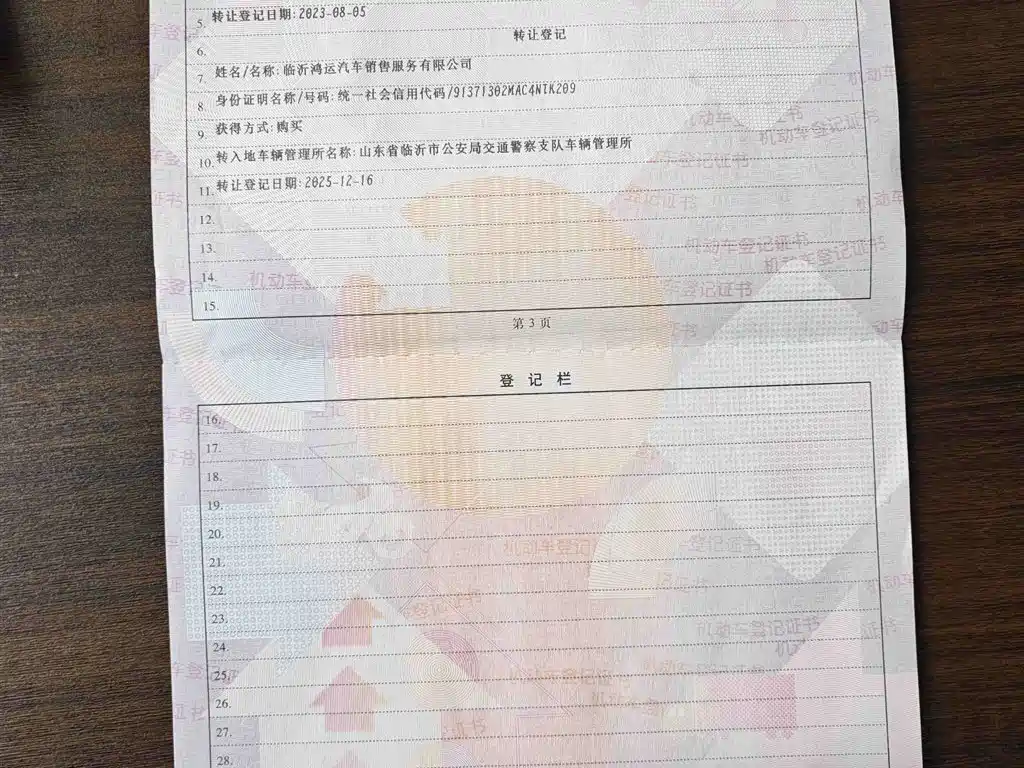 5. 转让登记日期:2023-08-05
6. 转让登记
7. 姓名/名称:临沂鸿运汽车销售服务有限公司
8. 身份证明名称/号码:统一社会信用代码/91371302MAC4NTK209
9. 获得方式:购买
10. 转入地车辆管理所名称:山东省临沂市公安局交通警察支队车辆管理所
11. 转让登记日期:2025-12-16
12.
13.
14.
15.
第 3 页
登 记 栏
16.
17.
18.
19.
20.
21.
22.
23.
24.
25.
26.
27.
28.